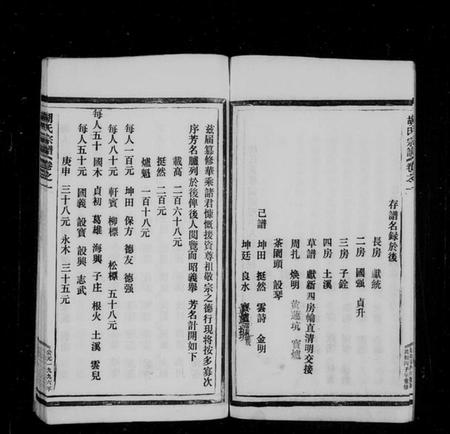 胡氏宗譜 卷之一
存譜名錄於後
長房 獻統
二房 國强 貞升
三房 子銓
四房 土溪
草譜 獻新四房輪直清明交接
周扎 煥明
茶園頭 設琴
己譜
坤田 挺然 雲詩 金明
坤廷 良水
茲届纂修華乘諸君慷慨接資尊祖敬宗之德行現將按多寡次
序芳名臚列於後俾後人閱覽而昭義舉 芳名計開如下
載高 二百六十八元
挺然 二百元
爐魁 一百十八元
每人一百元 坤田 保方 德友 德强
每人八十元 軒賓 柳標 松標 五十八元
每人五十 國木 貞初 葛雄 海興 子庄 根火 土溪 雲兒
每人五十元 國義 設寶 設興 志武
庚申 三十八元 永木 三十五元
胡氏宗譜 卷之一
公元一九九六年